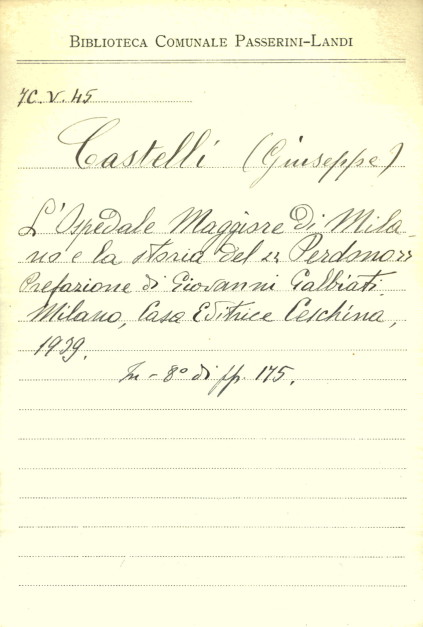 BIBLIOTECA COMUNALE PASSERINI-LANDI
7C.V.45
Castelli (Giuseppe)
L'Ospedale Maggiore di Mila-
no e la storia del "Perdono"
Prefazione di Giovanni Galbiati.
Milano, Casa Editrice Ceschina,
1939.
In-8° di pp. 175.